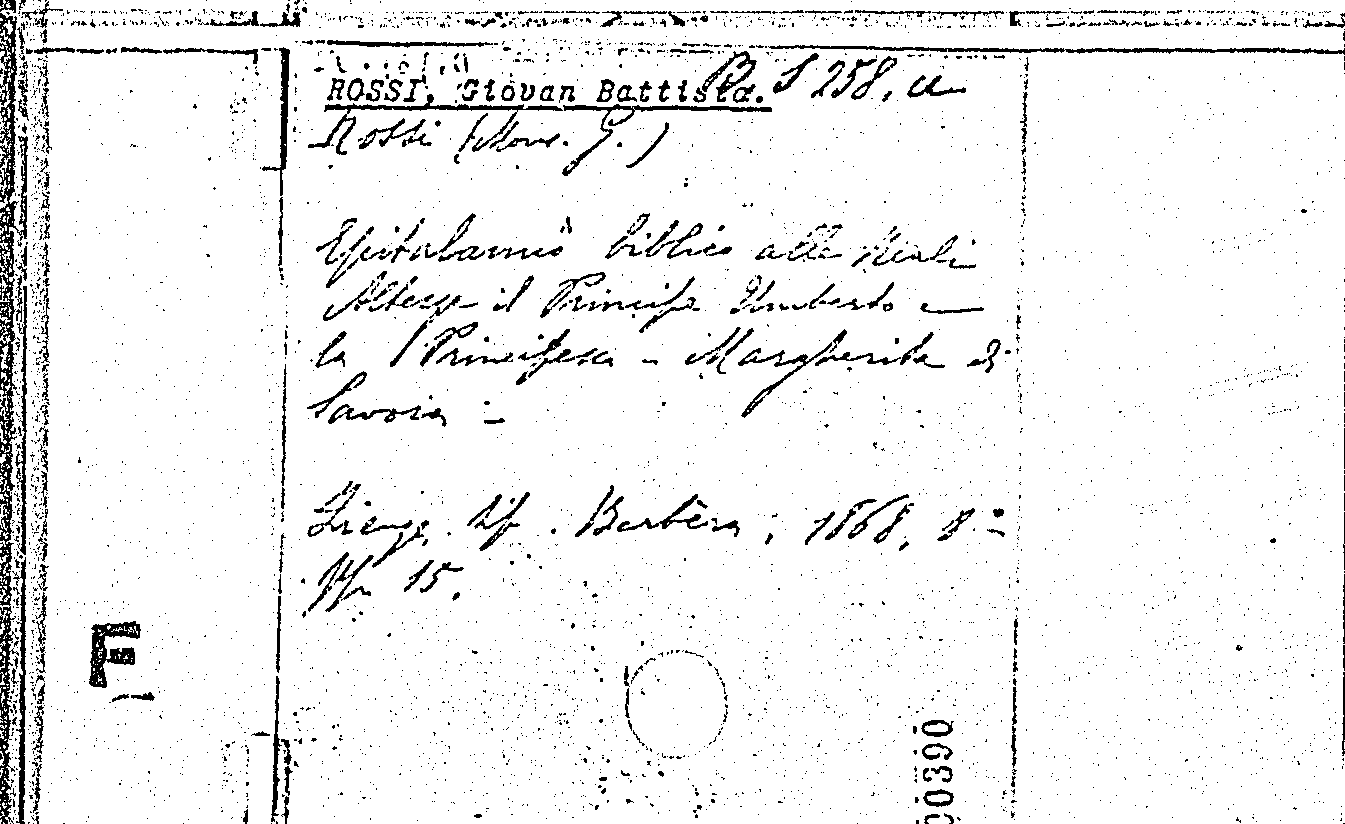 ROSSI, Giovan Battista. S 258, a
Rossi (Mons. G.)
Epitalamio biblico alle Reali
Altezze il Principe Umberto e
la Principessa - Margherita di
Savoia -
Firenze, tip. Barbèra, 1868, 8°
pp. 15.
F
00390